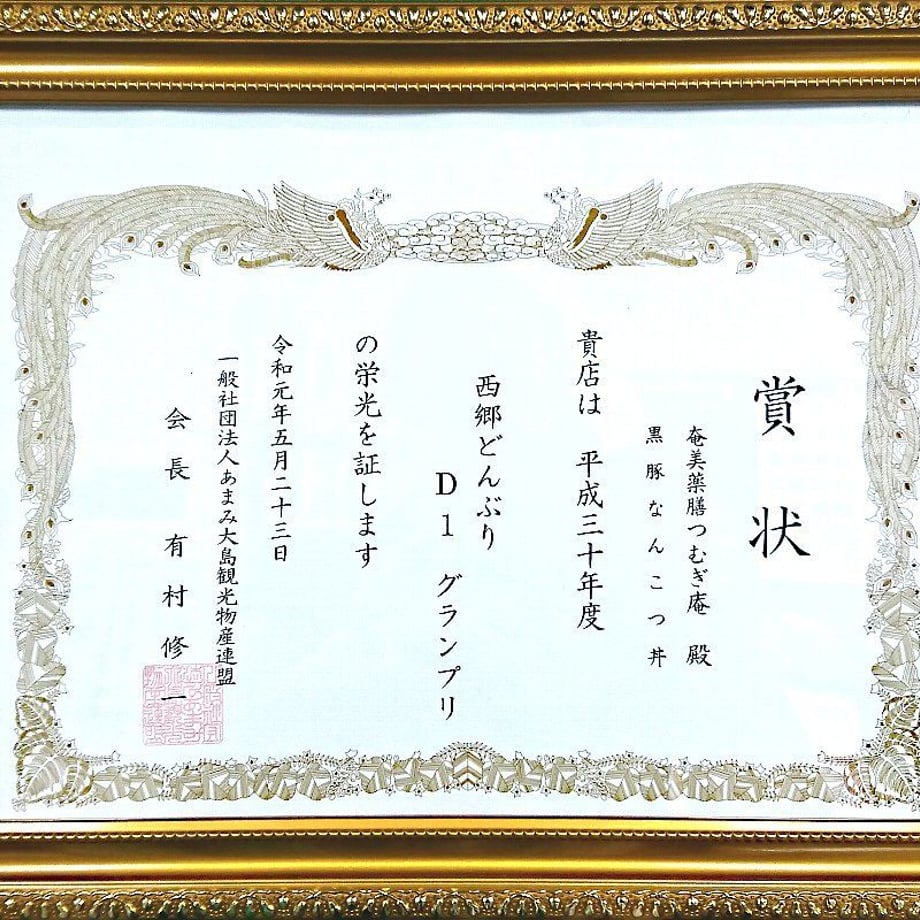 賞状
奄美薬膳つむぎ庵 殿
黒豚なんこつ丼
貴店は 平成三十年度
西郷どんぶり
D1 グランプリ
の栄光を証します
令和元年五月二十三日
一般社団法人あまみ大島観光物産連盟
会長 有村修一